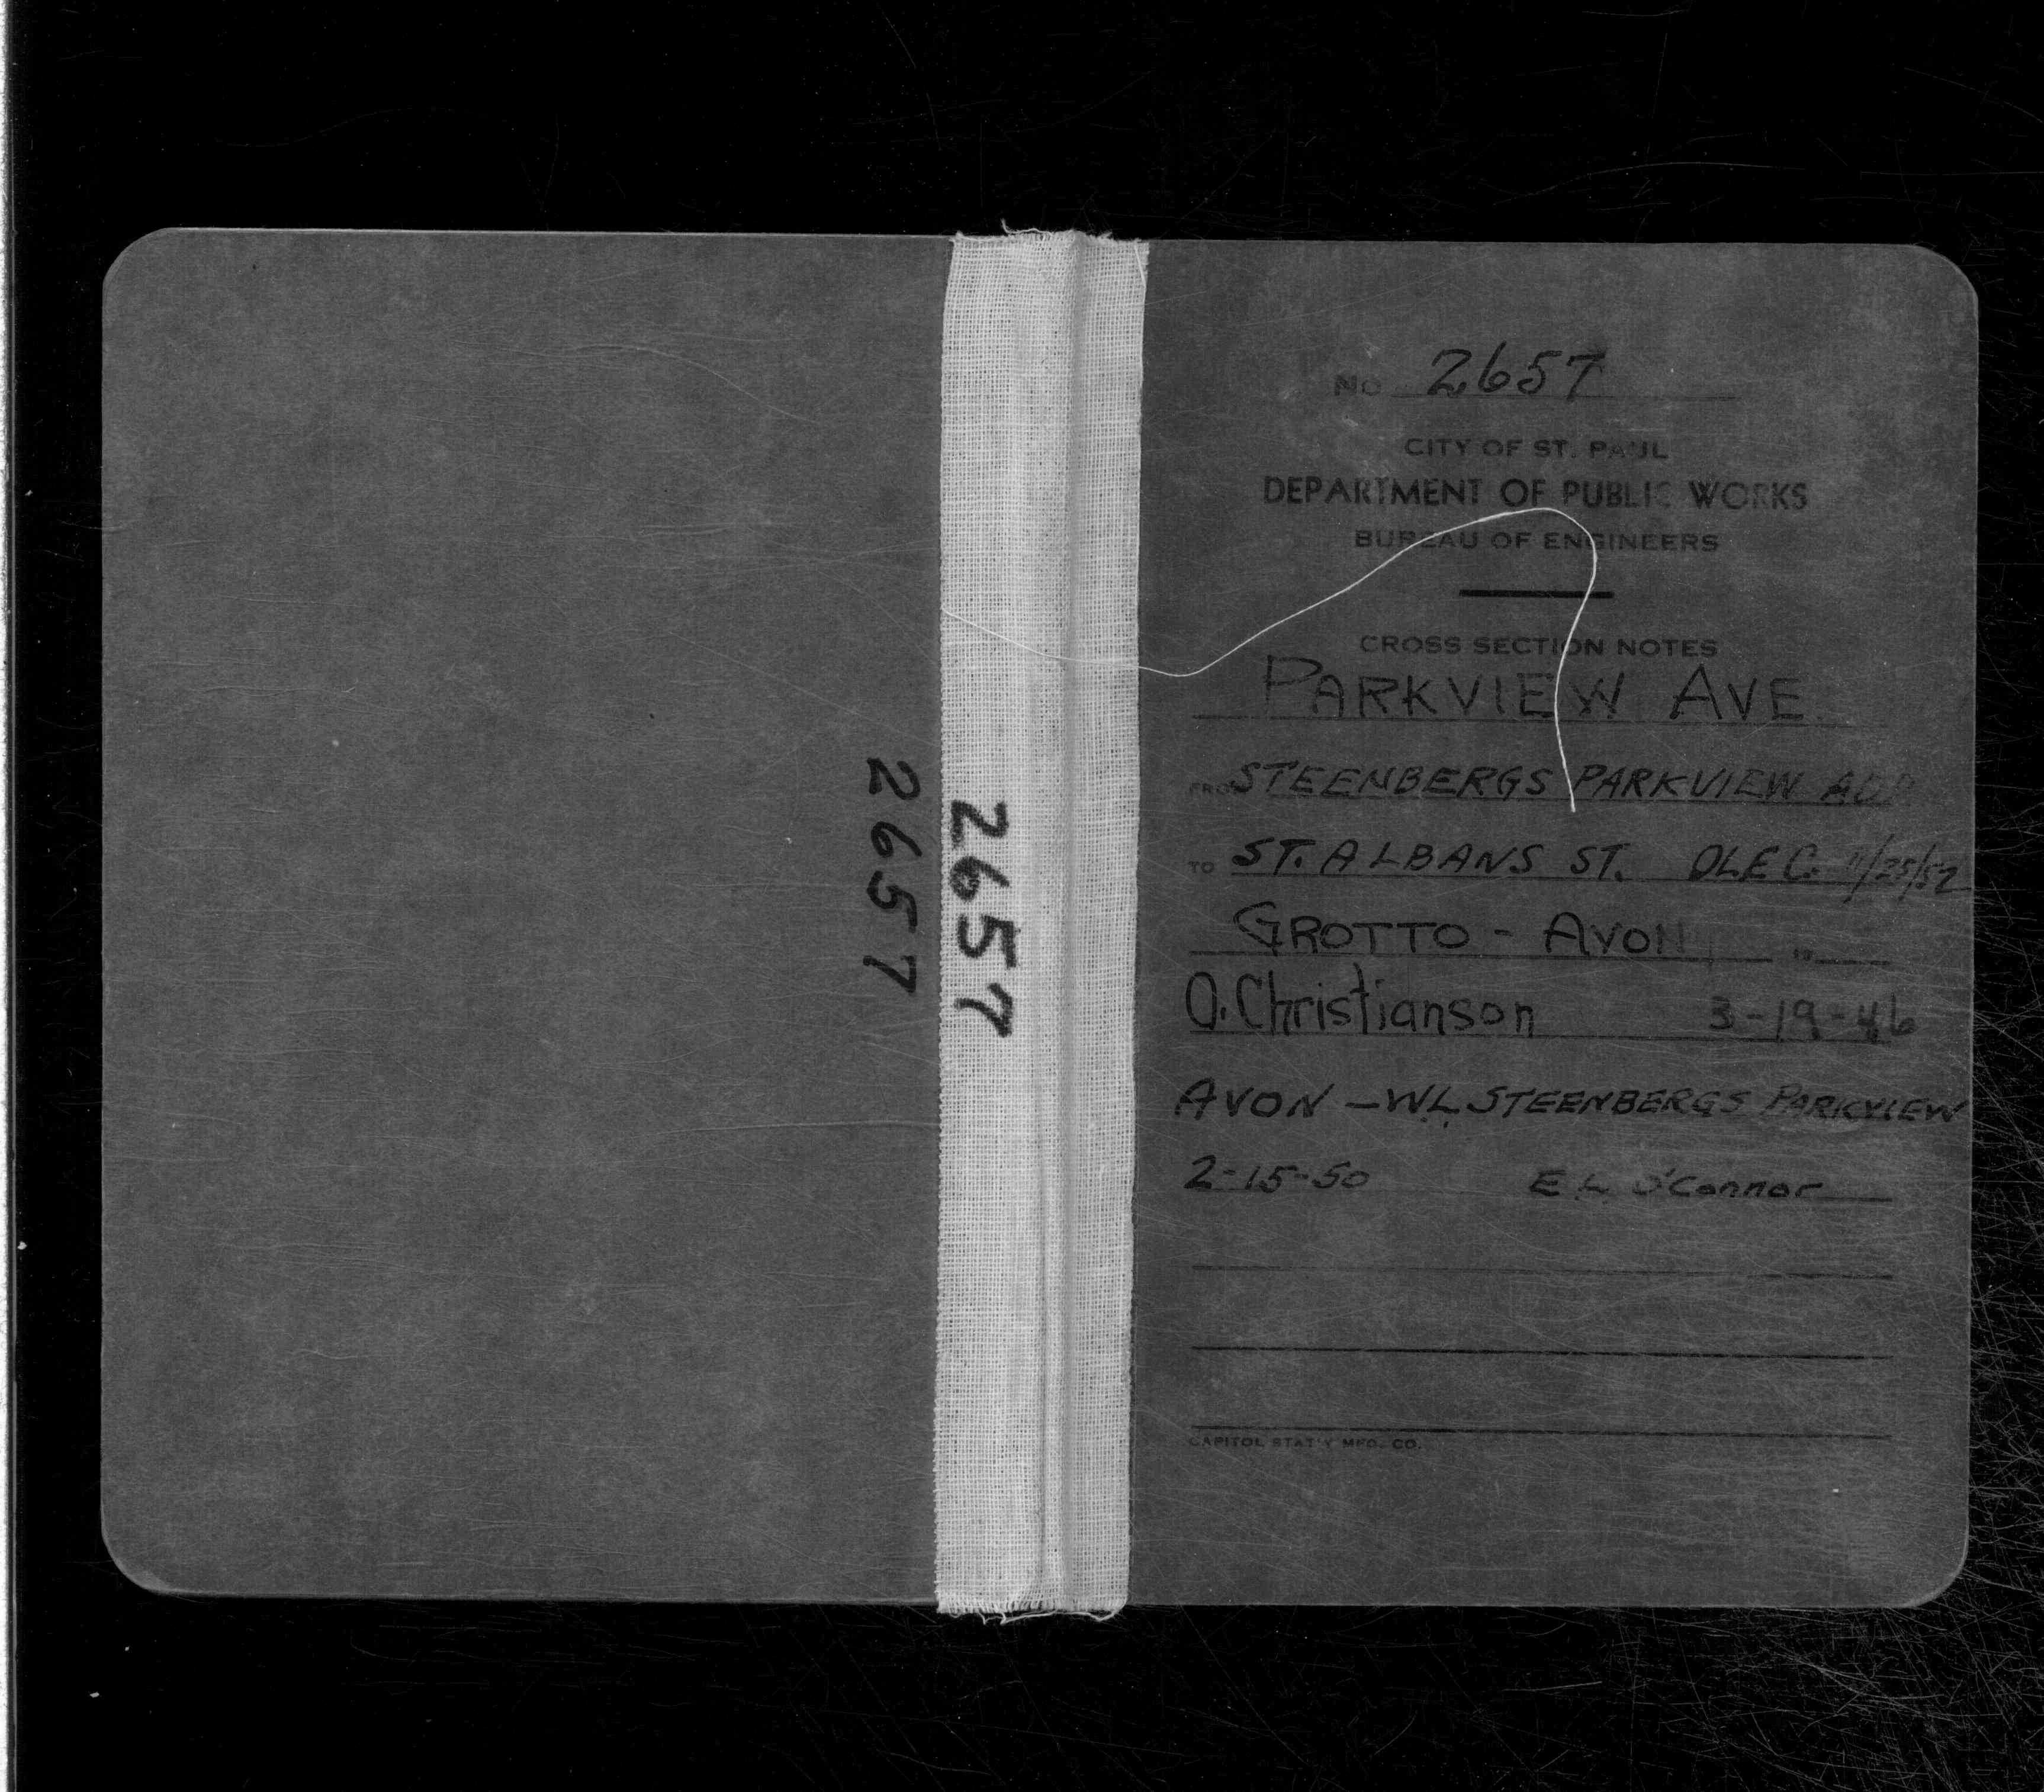 2657
2657
No 2657
CITY OF ST. PAUL
DEPARTMENT OF PUBLIC WORKS
BUREAU OF ENGINEERS
CROSS SECTION NOTES
PARKVIEW AVE
FROM STEENBERGS PARKVIEW ADD
TO ST. ALBANS ST. OLE C. 11/25/52
GROTTO - AVON
O. Christianson 3-19-46
AVON - WL STEENBERGS PARKVIEW
2-15-50 E L O'Connor
CAPITOL STAT'Y MFG. CO.